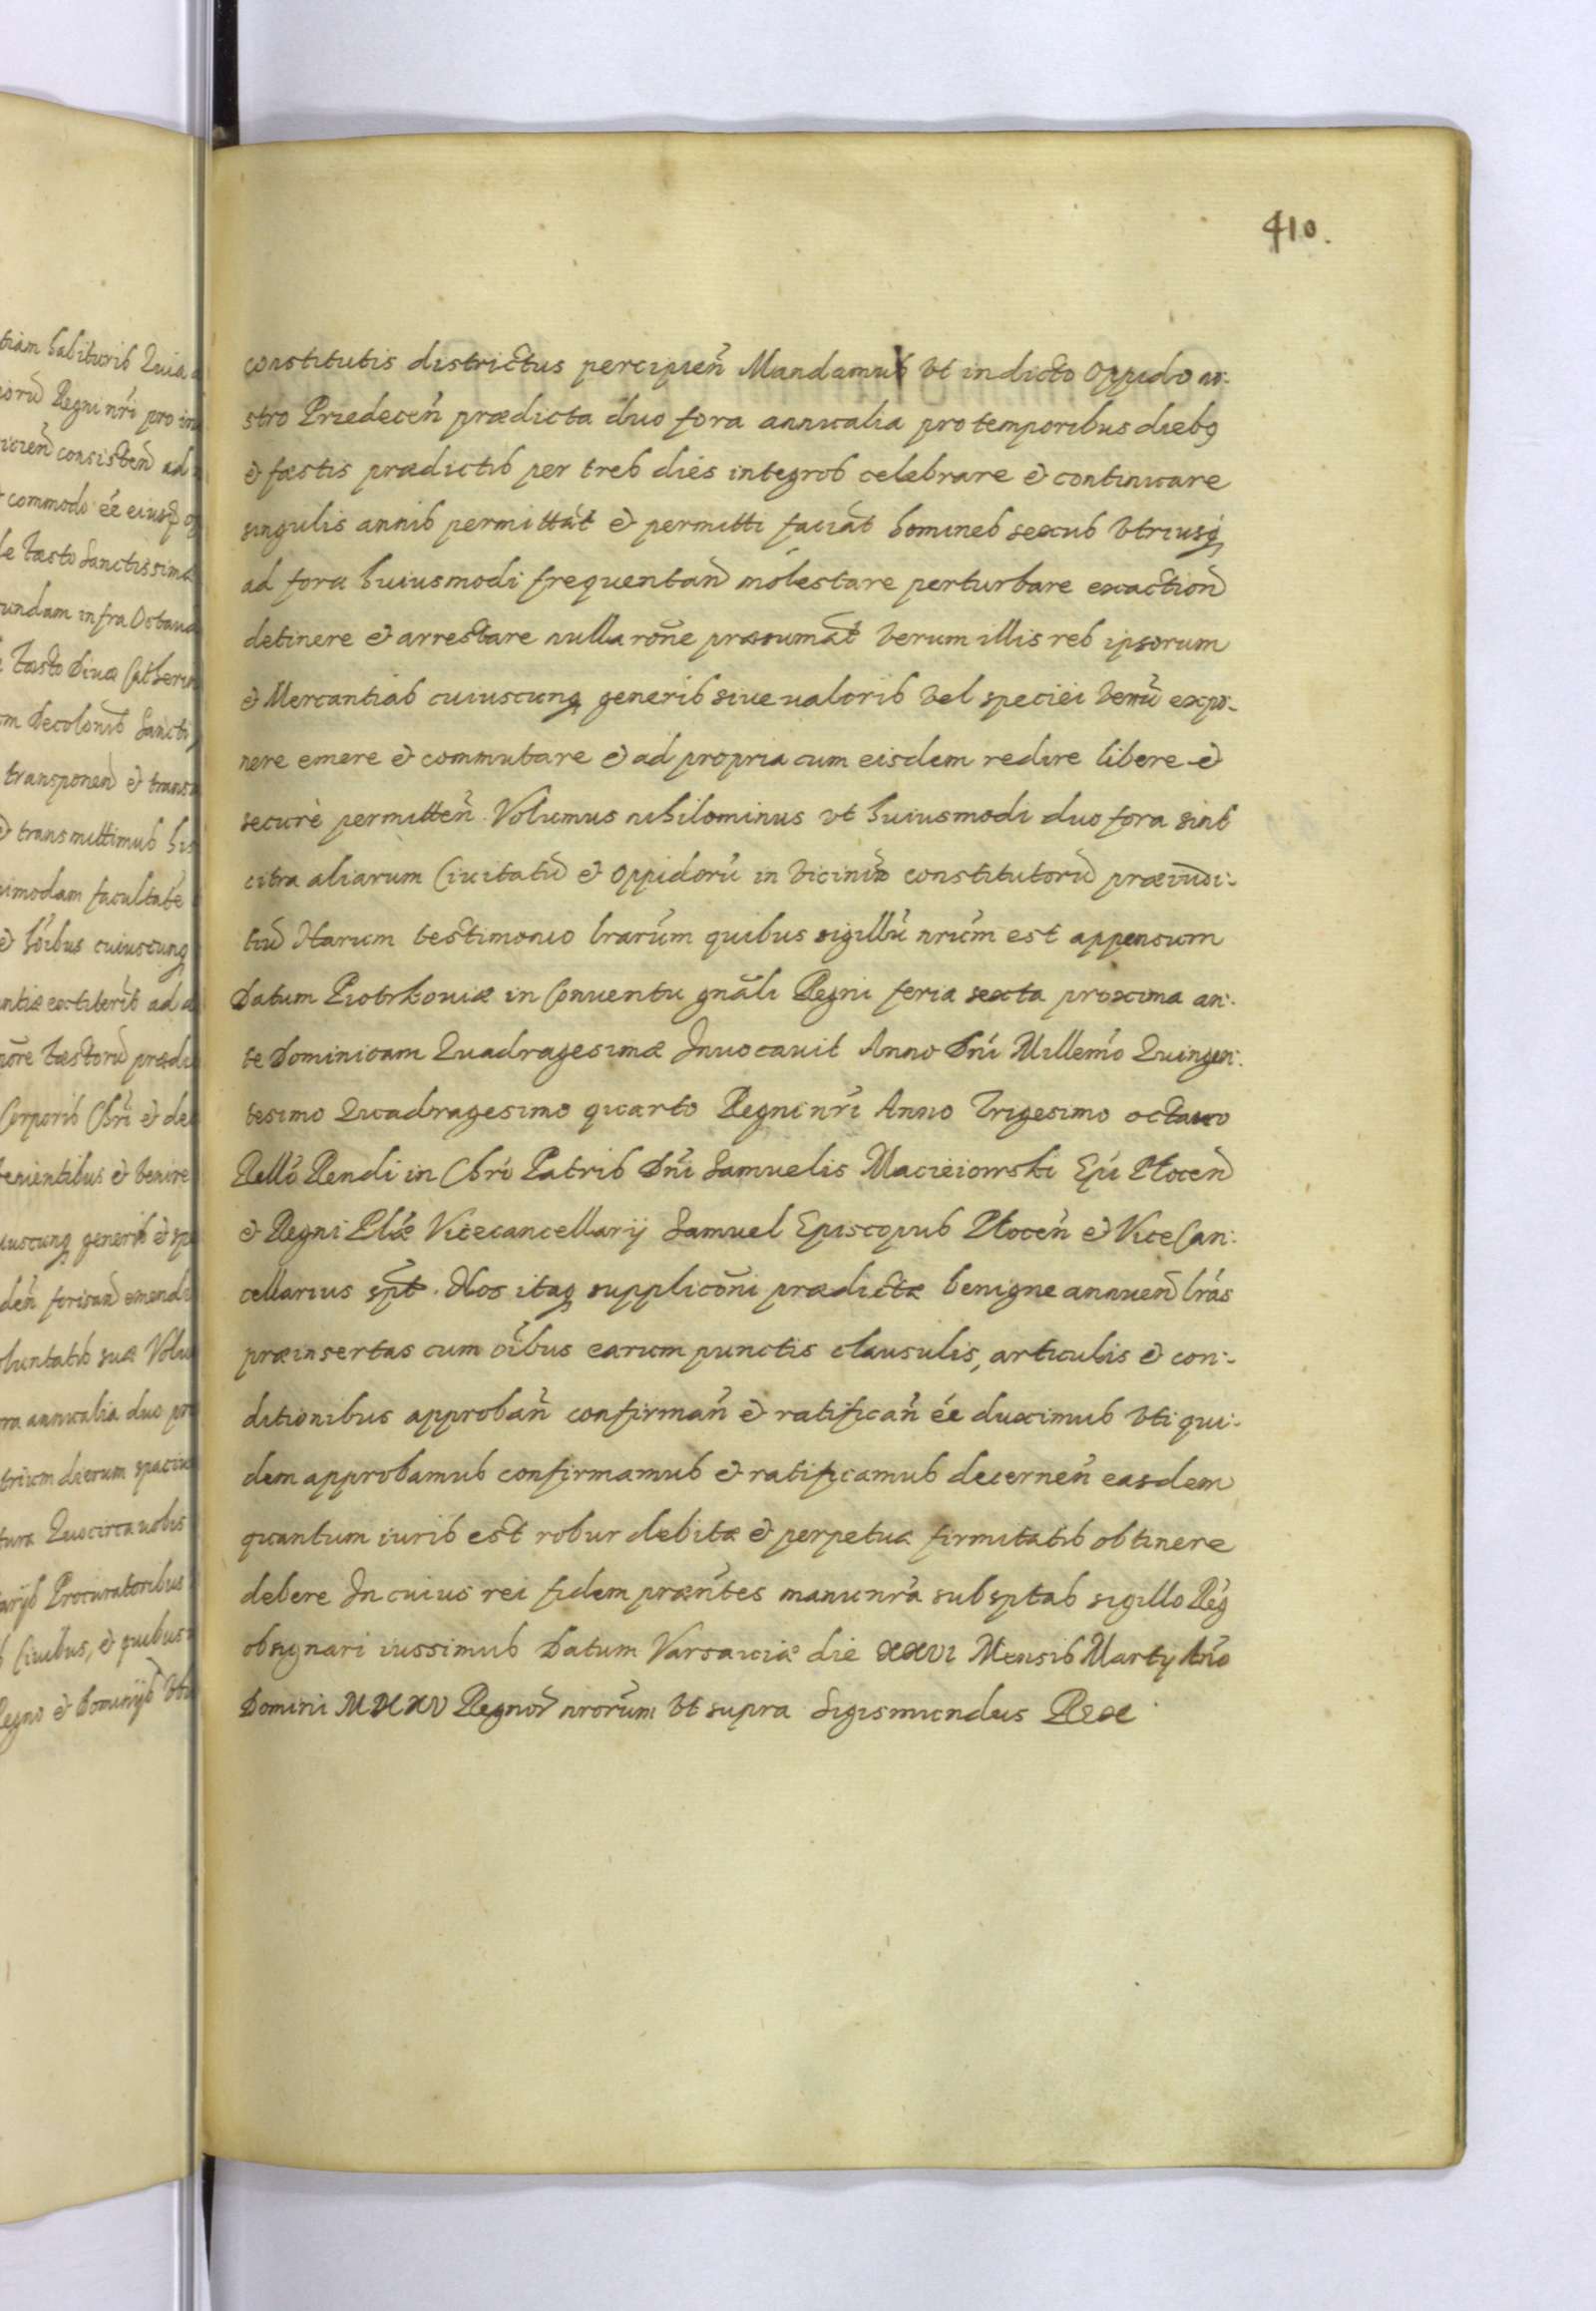 410.
constitutis districtus percipień Mandamus vt in dicto Oppido no:
stro Priedeceń prædicta duo fora annualia pro temporibus diebꝫ
& fæstis prædictis per tres dies integros celebrare & continuare
singulis annis permittāt & permitti faciāt homines sexus vtriusqꝫ
ad fora huiusmodi frequentañ molestare perturbare exactioñ
detinere & arrestare nulla rōne præsumāt verum illis res ipsorum
& Mercantias cuiuscunqꝫ generis siue valoris vel speciei venū expo-
nere emere & commutare & ad propria cum eisdem redire libere &
securè permitteń Volumus nihilominus vt huiusmodi duo fora sint
citra aliarum Ciuitatū & Oppidorū in vicinia constitutorū præiudi:
tiū Harum testimonio lrarūm quibus sigillū nrūm est appensum
Datum Piotrkouiæ in Conuentu gnāli Regni feria sexta proxima an:
te Dominicam Quadragesimæ Inuocauit Anno Dńi Millemo Quingen:
tesimo Quadragesimo quarto Regni nrī Anno Trigesimo octauo
Rellō Rendi in Chrō Patris Dńi Samuelis Macieiowski Epī Plocen̄
& Regni Plīæ Vicecancellarij Samuel Episcopus Plocen̄ & ViceCan:
cellarius spt. Nos itaqꝫ supplicōni prædictæ benigne annuen̄ lrās
præinsertas cum oībus earum punctis clausulis, articulis & con:
ditionibus approbań confirmań & ratificań ēē duximus vti qui:
dem approbamus confirmamus & ratificamus decerneń easdem
quantum iuris est robur debitæ & perpetuæ firmitatis obtinere
debere In cuius rei fidem præn̄tes manu nrā subsptas sigillo Reg̃
obsignari iussimus Datum Varsauiæ die XXVI Mensis Martij Ańo
Domini MDXXV Regnoꝝ nrorūm vt supra Sigismundus Rex